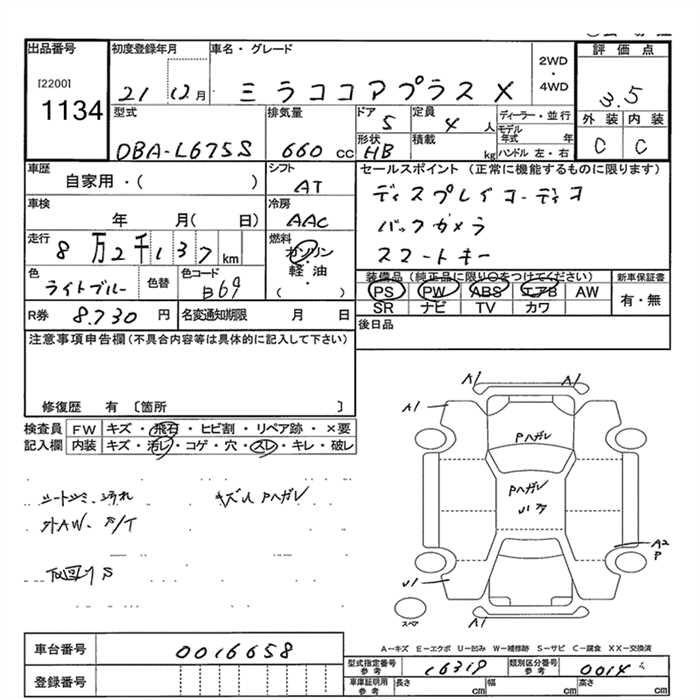 出品番号
[2200]
1134
初度登録年月
21 12月
車名・グレード
ミラココアプラス X
2WD
・
4WD
評価点
3.5
外装 内装
C C
型式
DBA-L675S
排気量
660 cc
ドア
5
定員
4 人
ディーラー・並行
モデル
年式 年
形状
HB
積載
kg
ハンドル 左・右
車歴
自家用・( )
シフト
AT
セールスポイント (正常に機能するものに限ります)
ディスプレイコーディオ
バックカメラ
スマートキー
車検
年 月( 日)
冷房
AAC
走行
8万2千137km
燃料
ガソリン
・
軽・油
( )
色
ライトブルー
色替
色コード
B69
装備品 (純正品に限り○をつけてください)
PS PW ABS エアB AW
SR ナビ TV カワ
新車保証書
有・無
R券 8.730円
名変通知期限 月 日
後日品
注意事項申告欄(不具合内容等は具体的に記入して下さい)
修復歴 有 〔箇所 〕
検査員
記入欄
FW キズ・飛石・ヒビ割・リペア跡・×要
内装 キズ・汚レ・コゲ・穴・スレ・キレ・破レ
シートシミ・汚れ
キズU Pハガレ
外AW. S/T
下回りS
A1 A1
A1
Pハガレ
Pハガレ
A2
P
U1
スペア
A1
A－キズ E－エクボ U－凹み W－補修跡 S－サビ C－腐食 XX－交換済
車台番号
0016658
登録番号
型式指定番号
参考
16319
類別区分番号
参考
0014
車庫証明用
参考
長さ cm
幅 cm
高さ cm